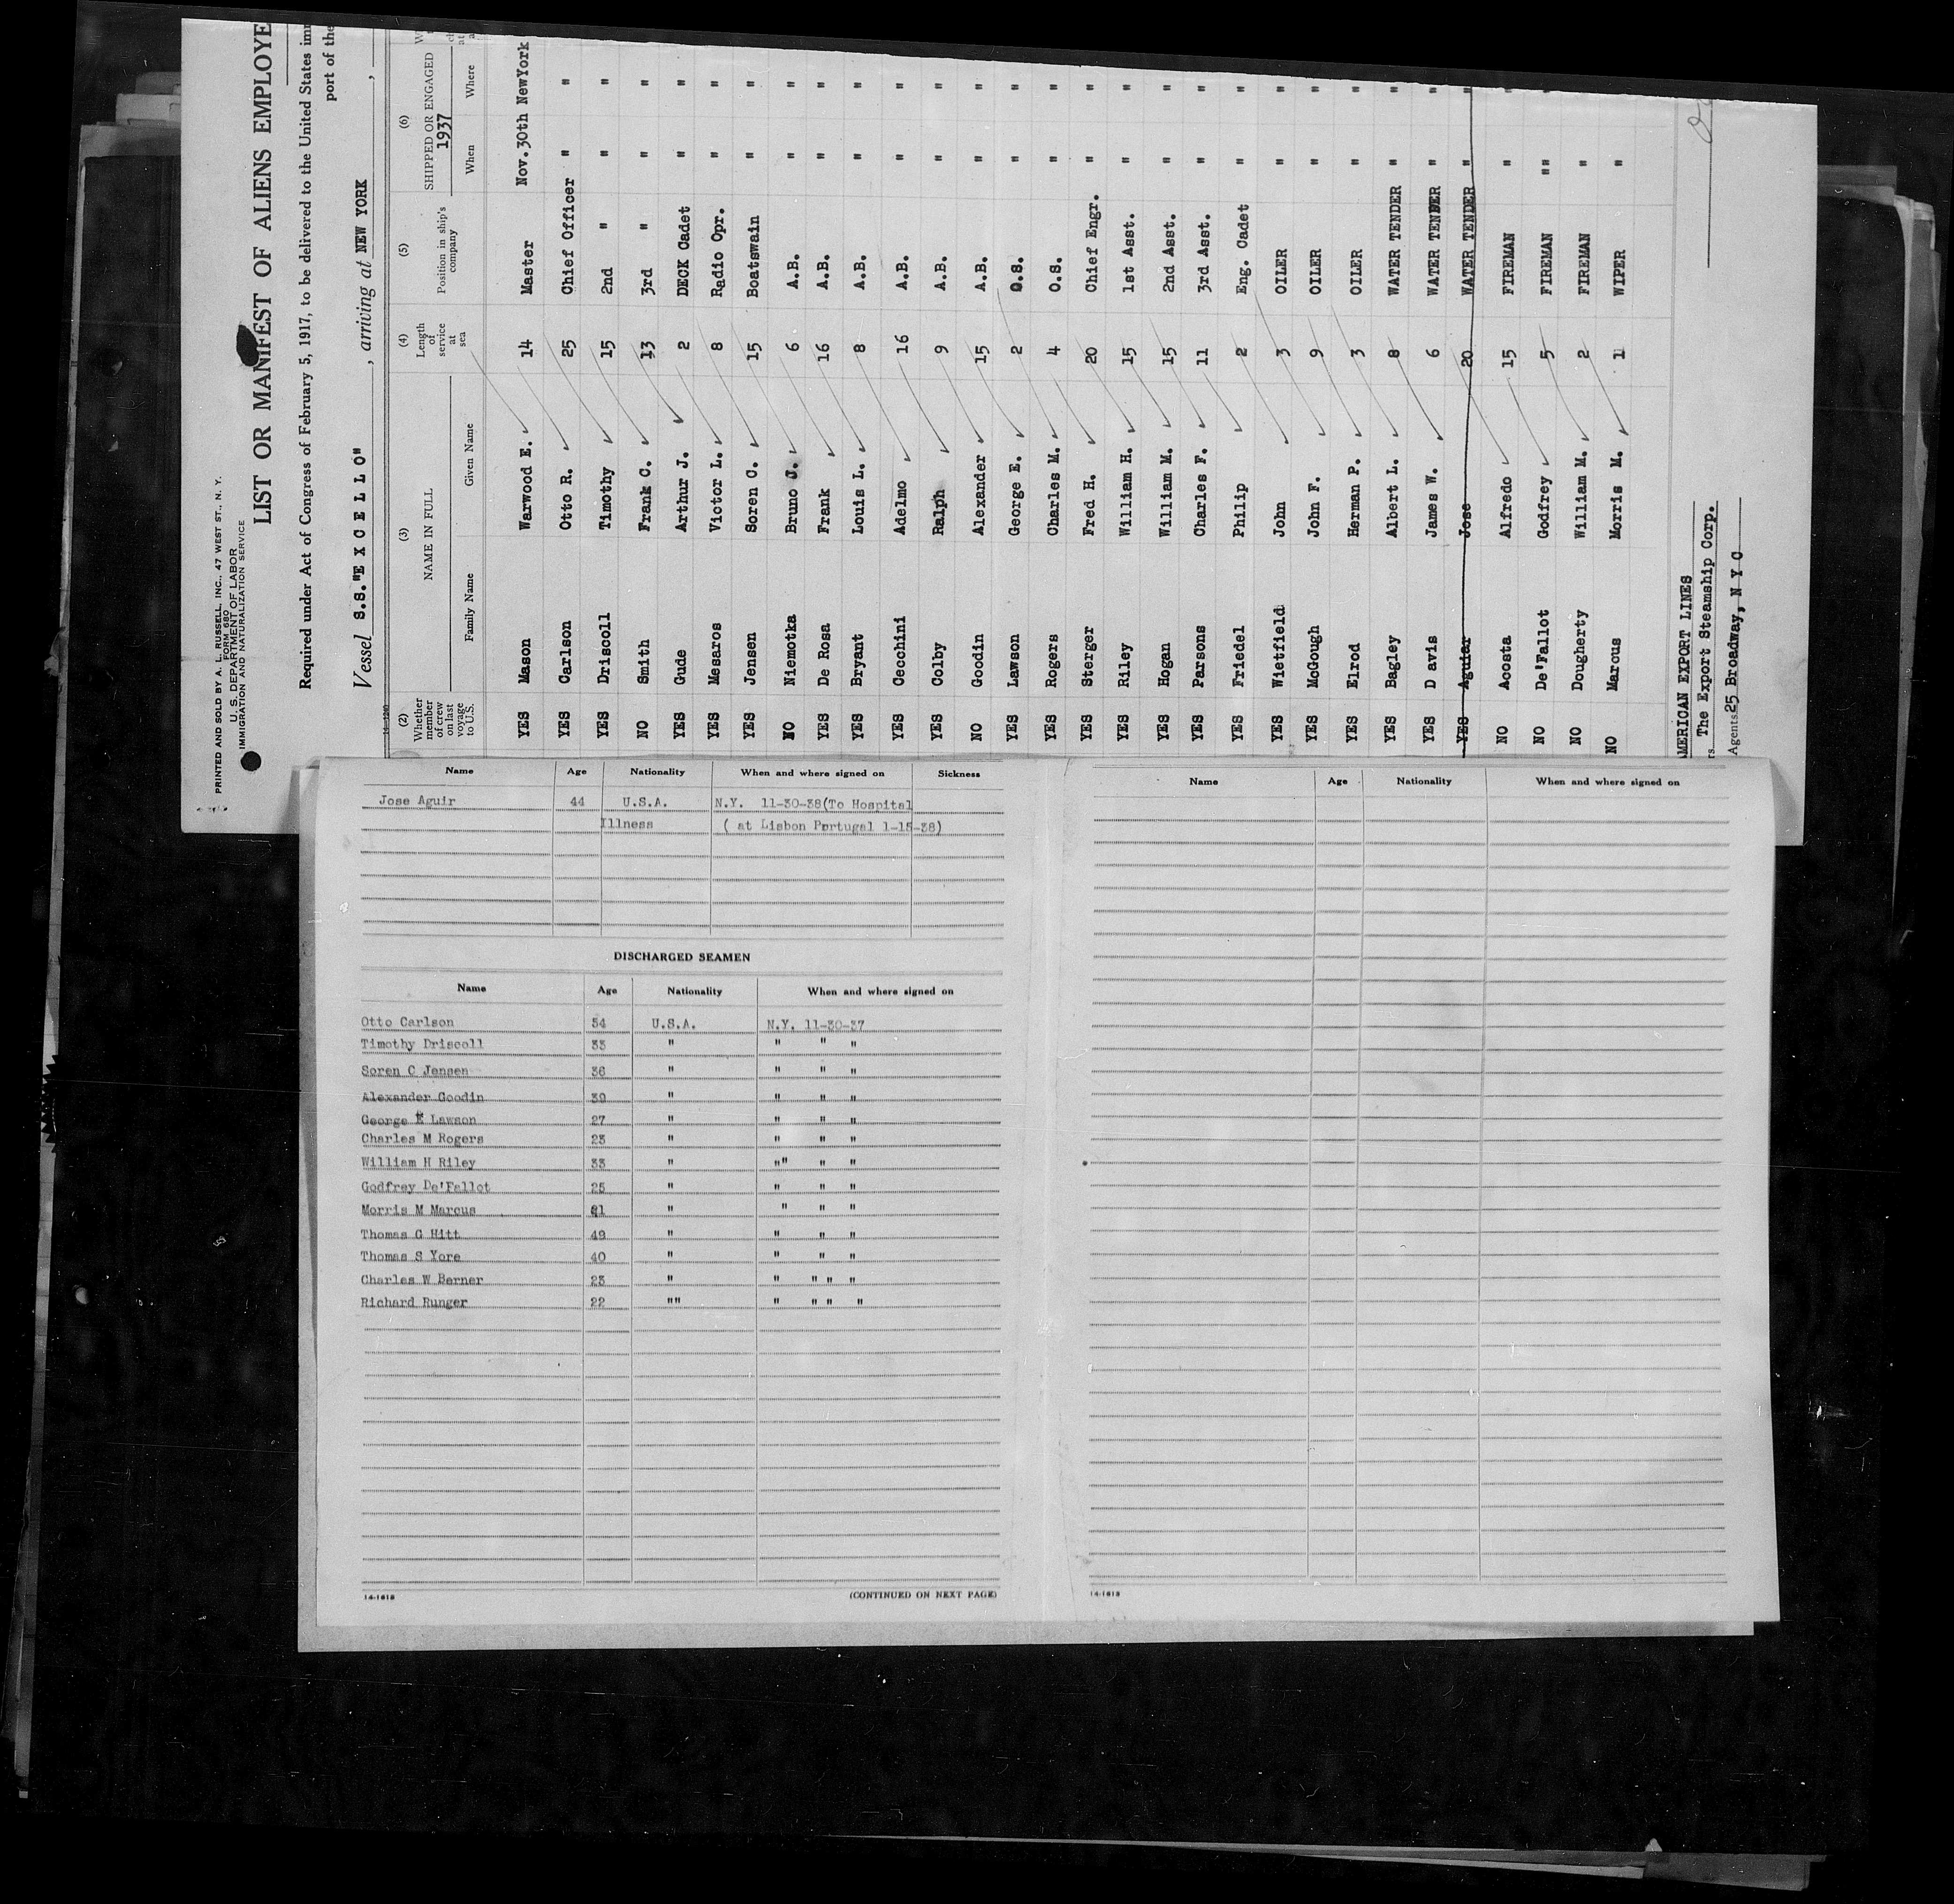 PRINTED AND SOLD BY A. L. RUSSELL, INC., 47 WEST ST., N. Y.
FORM 680
U. S. DEPARTMENT OF LABOR
IMMIGRATION AND NATURALIZATION SERVICE
LIST OR MANIFEST OF ALIENS EMPLOYE
Required under Act of Congress of February 5, 1917, to be delivered to the United States imm
port of the
Vessel S.S."E X C E L L O" , arriving at NEW YORK ,
(2) (3) (4) (5) (6)
Whether member of crew on last voyage to U.S. NAME IN FULL Length of service at sea Position in ship's company SHIPPED OR ENGAGED
1937
Family Name Given Name When Where
YES Mason Warwood E. 14 Master Nov.30th NewYork
YES Carlson Otto R. 25 Chief Officer " "
YES Driscoll Timothy 15 2nd " " "
NO Smith Frank C. 13 3rd " " "
YES Gude Arthur J. 2 DECK Cadet " "
YES Mesaros Victor L. 8 Radio Opr. " "
YES Jensen Soren C. 15 Boatswain " "
NO Niemotka Bruno J. 6 A.B. " "
YES De Rosa Frank 16 A.B. " "
YES Bryant Louis L. 8 A.B. " "
YES Cecchini Adelmo 16 A.B. " "
YES Colby Ralph 9 A.B. " "
NO Goodin Alexander 15 A.B. " "
YES Lawson George E. 2 O.S. " "
YES Rogers Charles M. 4 O.S. " "
YES Sterger Fred H. 20 Chief Engr. " "
YES Riley William H. 15 1st Asst. " "
YES Hogan William M. 15 2nd Asst. " "
YES Parsons Charles F. 11 3rd Asst. " "
YES Friedel Philip 2 Eng. Cadet " "
YES Wietfield John 3 OILER " "
YES McGough John F. 9 OILER " "
YES Elrod Herman P. 3 OILER " "
YES Bagley Albert L. 8 WATER TENDER " "
YES D avis James W. 6 WATER TENDER " "
YES Aguier Jose 20 WATER TENDER " "
NO Acosta Alfredo 15 FIREMAN " "
NO De'Fallot Godfrey 5 FIREMAN "" "
NO Dougherty William M. 2 FIREMAN " "
NO Marcus Morris M. 1 WIPER " "
MERICAN EXPORT LINES
The Export Steamship Corp.
Agents 25 Broadway, N Y C
Name Age Nationality When and where signed on Sickness
Jose Aguir 44 U.S.A. N.Y. 11-30-38(To Hospital
Illness ( at Lisbon Portugal 1-15-38)
DISCHARGED SEAMEN
Name Age Nationality When and where signed on
Otto Carlson 54 U.S.A. N.Y. 11-30-37
Timothy Driscoll 33 " " " "
Soren C Jensen 36 " " " "
Alexander Goodin 39 " " " "
George E Lawson 27 " " " "
Charles M Rogers 23 " " " "
William H Riley 33 " "" " "
Godfrey De'Fallot 25 " " " "
Morris M Marcus 21 " " " "
Thomas G Hitt 49 " " " "
Thomas S Yore 40 " " " "
Charles W Berner 23 " " " " "
Richard Runger 22 "" " " " "
14-1618 (CONTINUED ON NEXT PAGE)
Name Age Nationality When and where signed on
14-1618